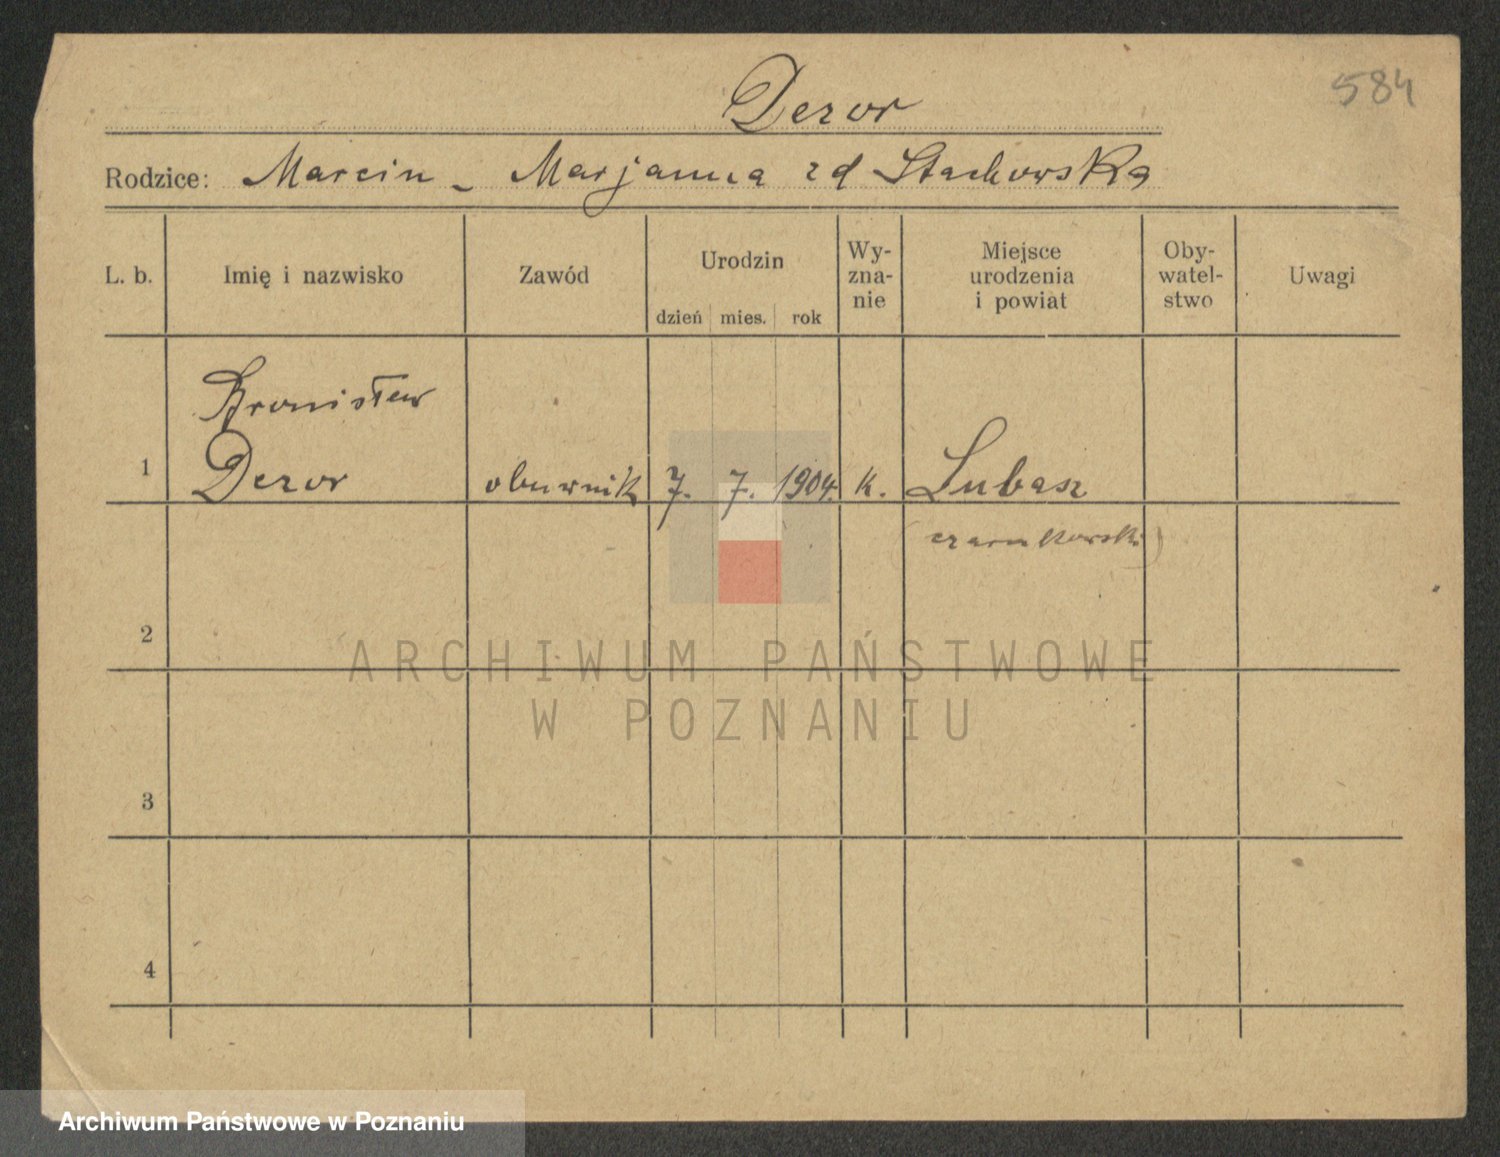 584
Dezor
Rodzice: Marcin - Marjanna zd Stachowska
L. b. Imię i nazwisko Zawód Urodzin dzień mies. rok Wy-zna-nie Miejsce urodzenia i powiat Oby-watel-stwo Uwagi
Bronisław
1 Dezor obuwnik 7. 7. 1904. k. Lubasz
(czarnkowski)
2
3
4
ARCHIWUM PAŃSTWOWE
W POZNANIU
Archiwum Państwowe w Poznaniu